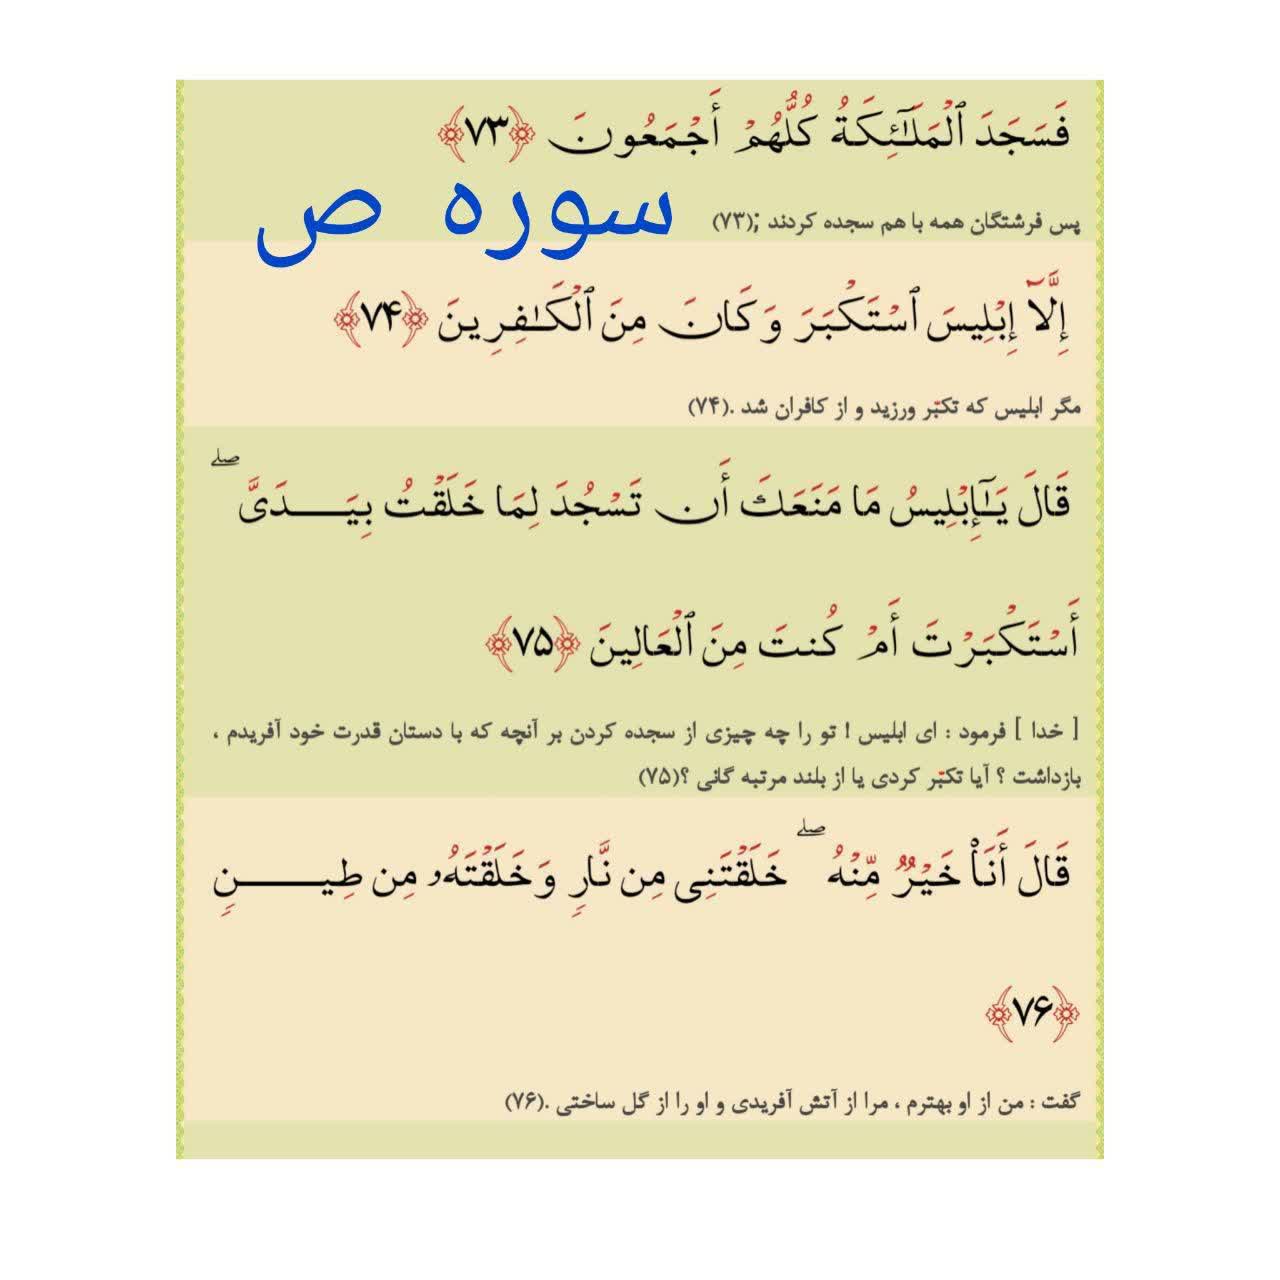 فَسَجَدَ ٱلْمَلَـٰٓئِكَةُ كُلُّهُمْ أَجْمَعُونَ ﴿۷۳﴾
سوره ص
پس فرشتگان همه با هم سجده کردند ;(۷۳)
إِلَّآ إِبْلِيسَ ٱسْتَكْبَرَ وَكَانَ مِنَ ٱلْكَـٰفِرِينَ ﴿۷۴﴾
مگر ابلیس که تکبّر ورزید و از کافران شد .(۷۴)
قَالَ يَـٰٓإِبْلِيسُ مَا مَنَعَكَ أَن تَسْجُدَ لِمَا خَلَقْتُ بِيَـــدَىَّ ۖ
أَسْتَكْبَرْتَ أَمْ كُنتَ مِنَ ٱلْعَالِينَ ﴿۷۵﴾
[ خدا ] فرمود : ای ابلیس ! تو را چه چیزی از سجده کردن بر آنچه که با دستان قدرت خود آفریدم ،
بازداشت ؟ آیا تکبّر کردی یا از بلند مرتبه گانی ؟(۷۵)
قَالَ أَنَا۠ خَيْرٌ مِّنْهُ ۖ خَلَقْتَنِى مِن نَّارٍ وَخَلَقْتَهُۥ مِن طِيـــنٍ
﴿۷۶﴾
گفت : من از او بهترم ، مرا از آتش آفریدی و او را از گل ساختی .(۷۶)